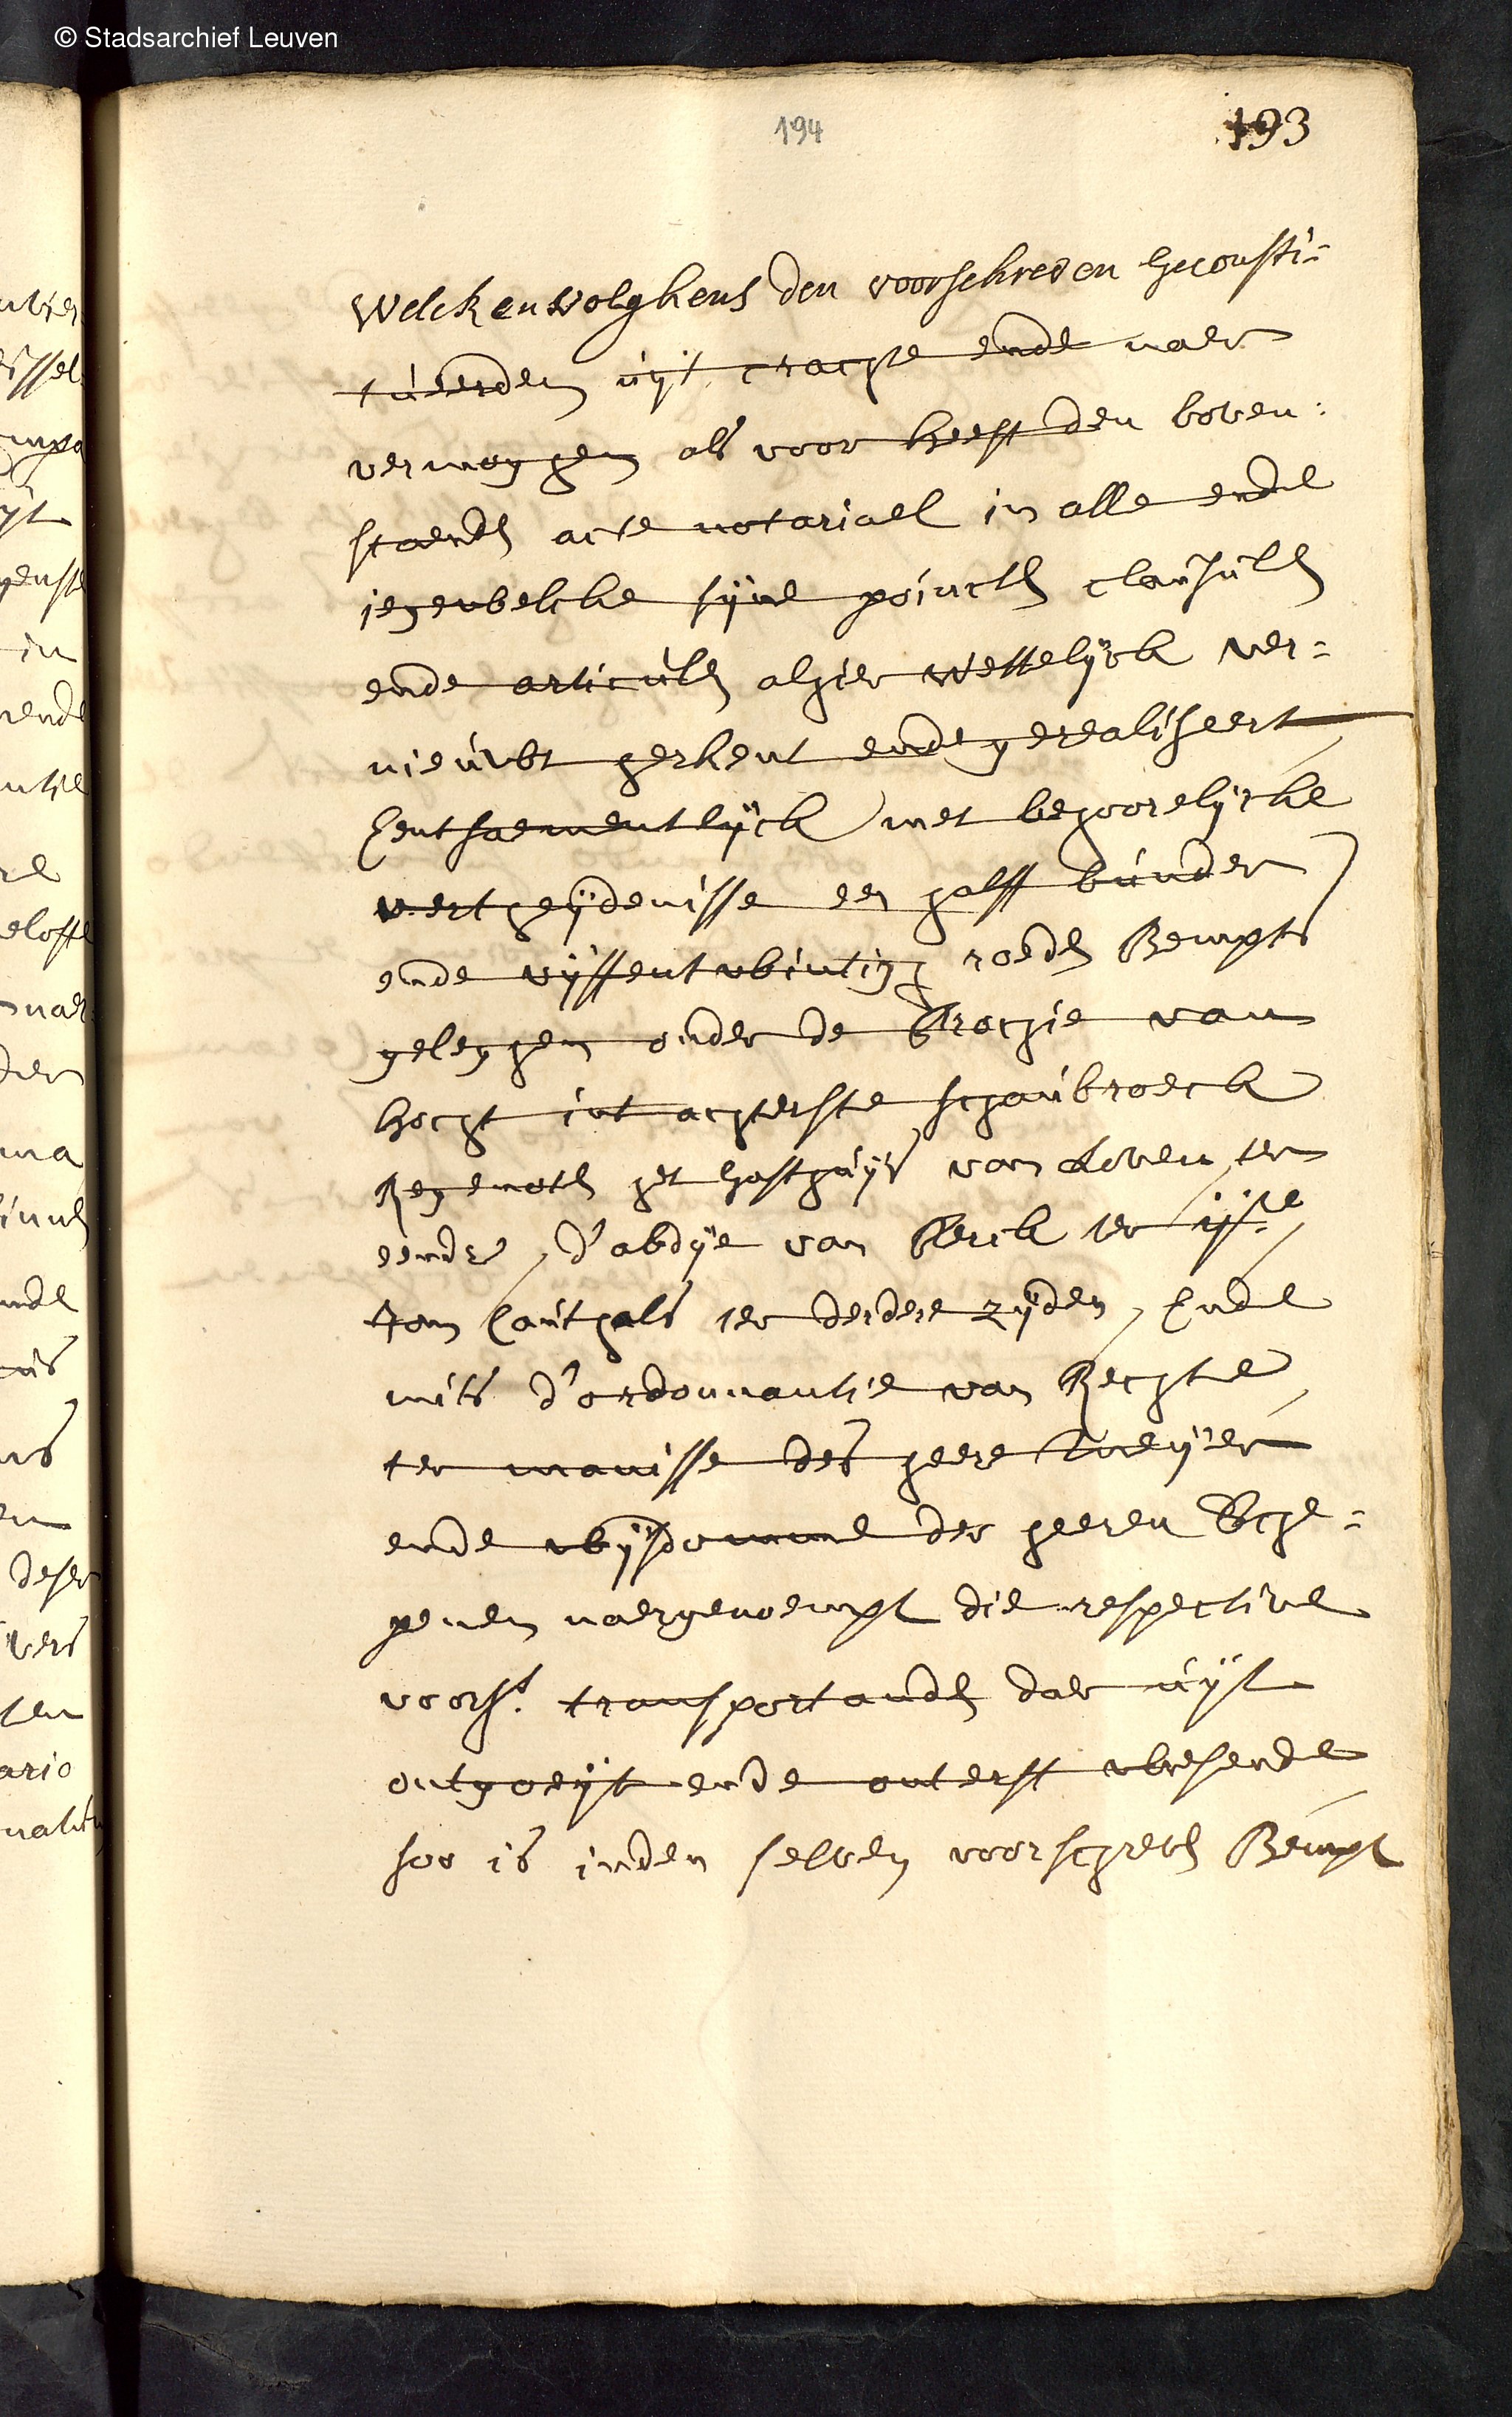 © Stadsarchief Leuven
194
193
Welcken volghens den voorschreven Geconsti-
tueerden uÿt crachte ende naer
vermoghen als voor heeft den boven-
staende acte notariael in alle ende
iegewelcke sÿne poincten clausulen
ende articulen alhier wettelÿck ver-
nieuwt herkent ende gerealiseert
Entsaementlÿck met behoorelÿcke
vertheÿdenisse een halff bunder
ende vÿffentwintigh roeden Bempts
geleghen onder de Prochie van
int achterste schaubroeck
Regenoten het Gasthuÿs van Loven ter
eendre, d'abdÿe van Perck ter ijste
Jan Cauthals ter derdere zÿden, Ende
mits d'ordonnantie van Rechte
ter manisse des heere Meÿer
ende wÿsdomme der heeren Sche-
penen naergenoempt die respective
voors. transportanden daer uÿt
ontgoeÿt ende onterft wesende
soo is inden selven voorschreven Bempt